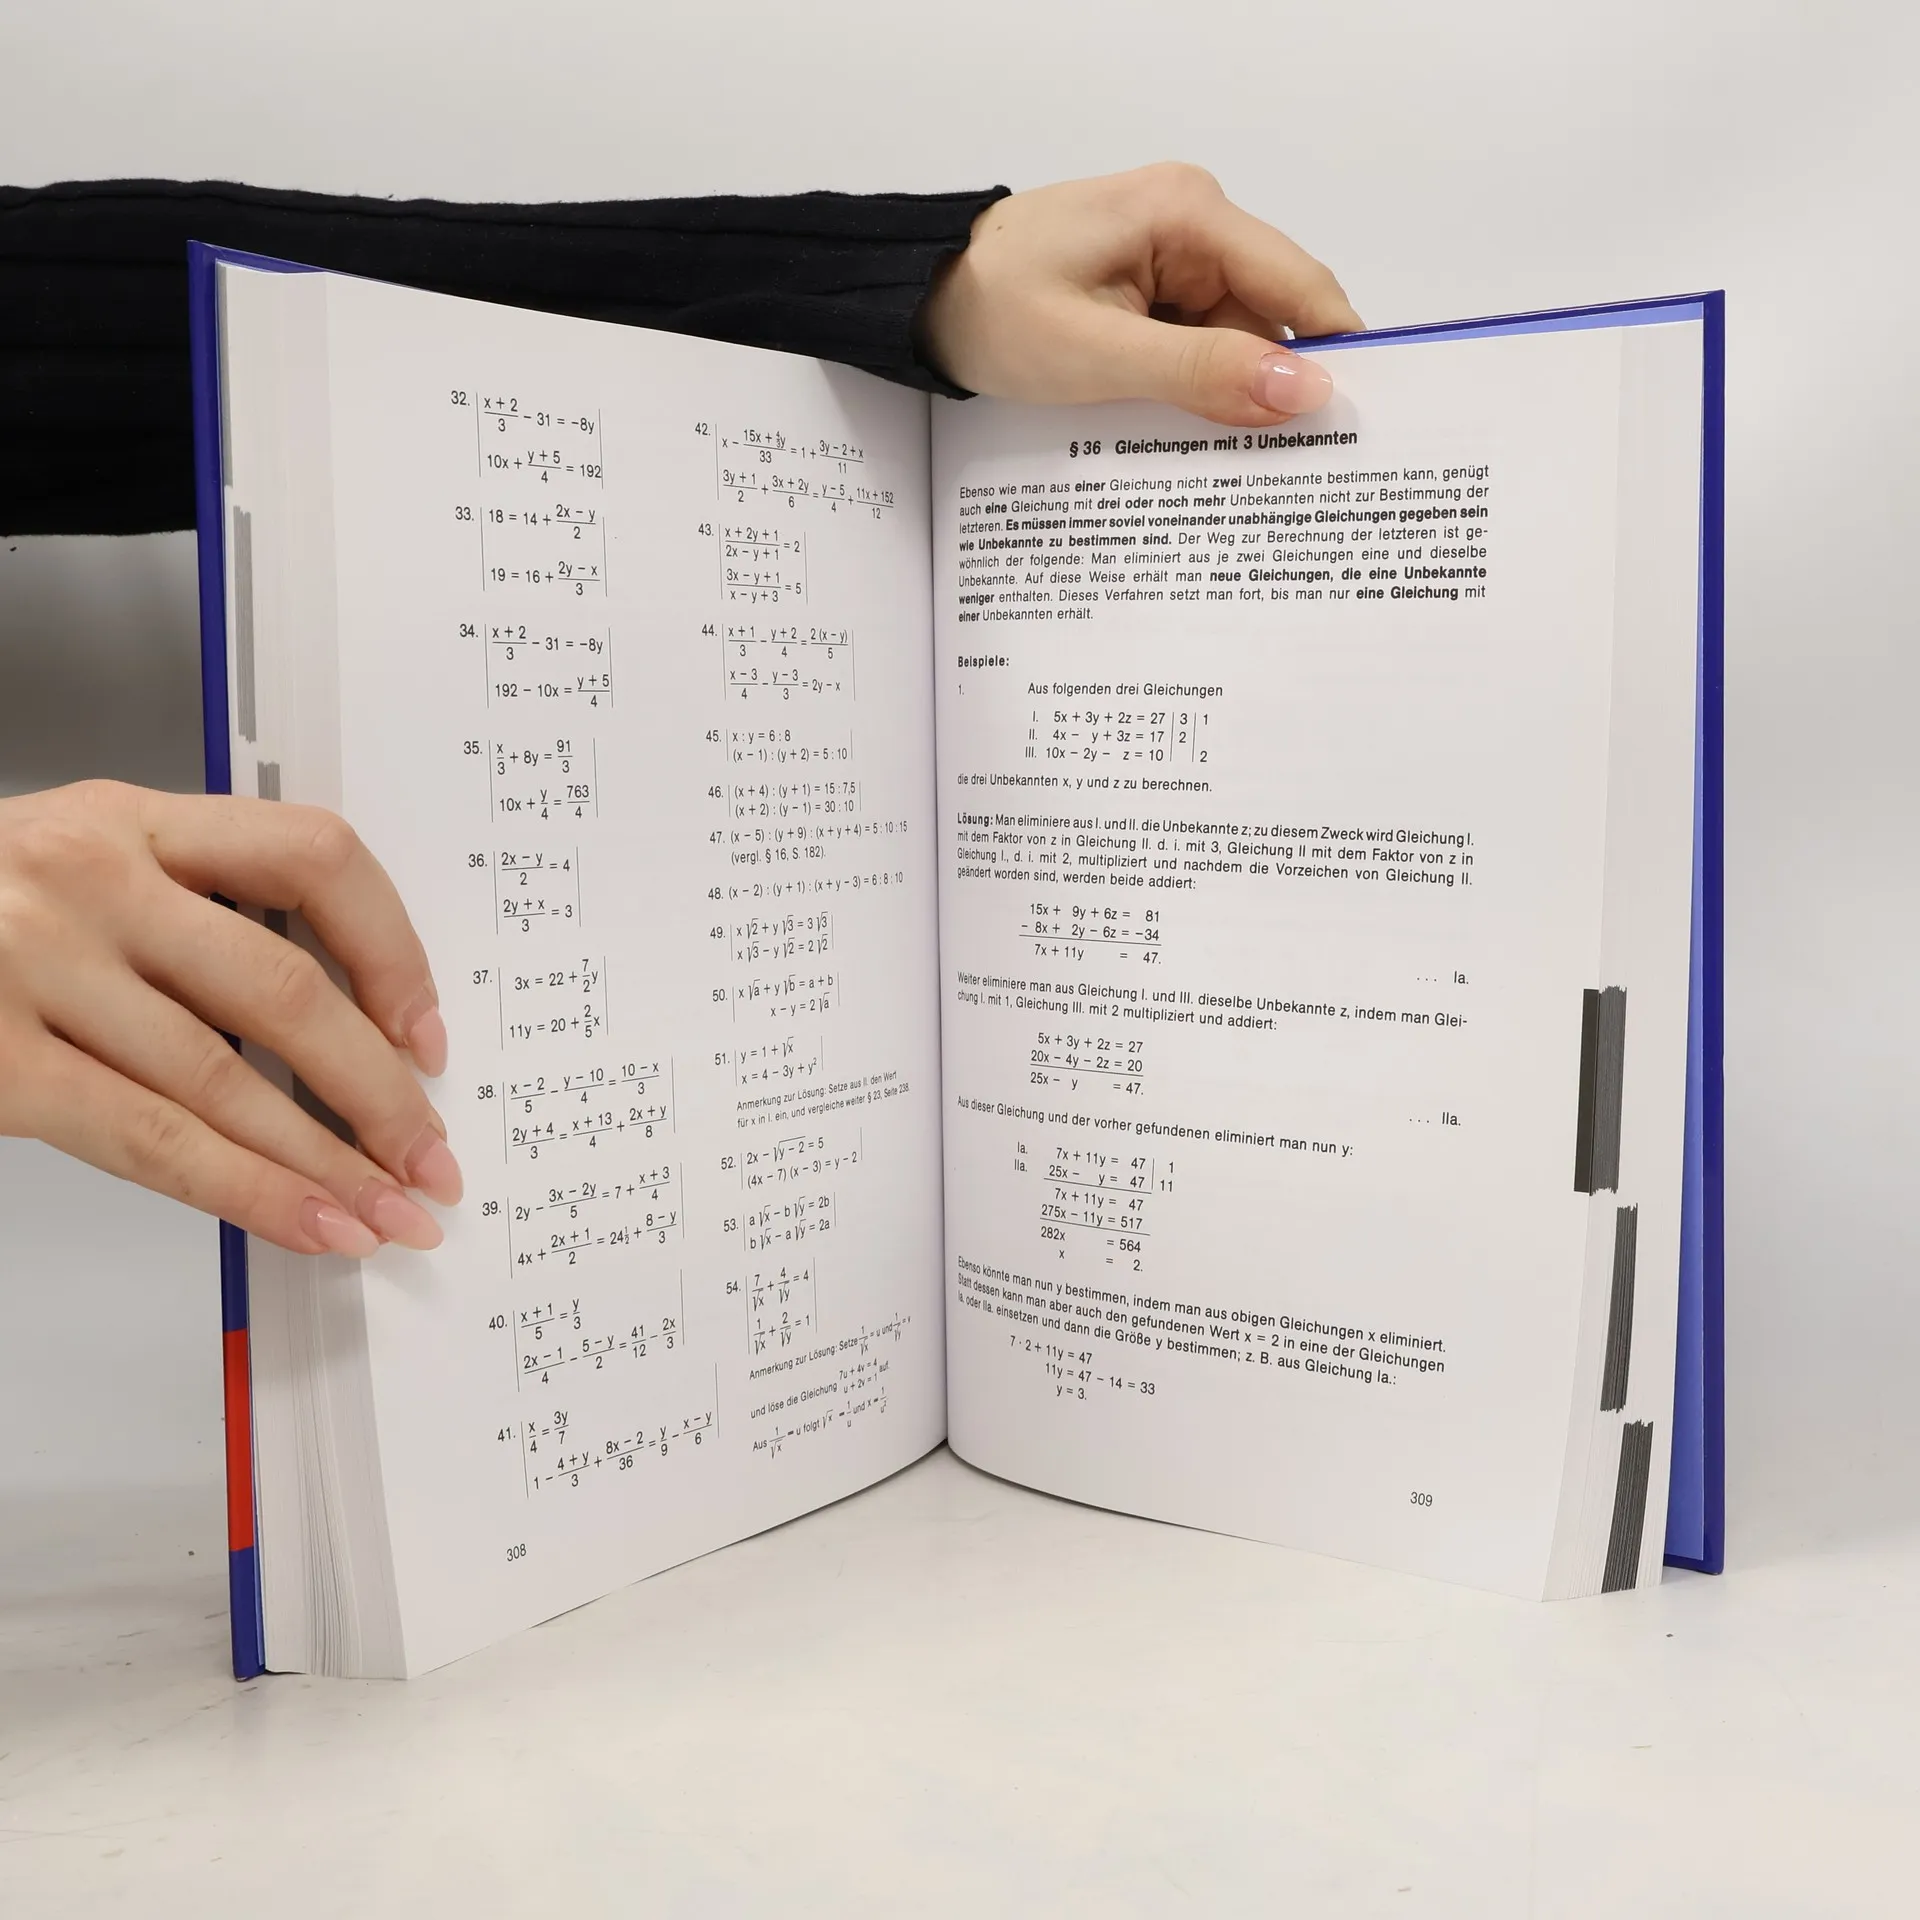 32. | (x + 2)/3 − 31 = −8y |
10x + (y + 5)/4 = 192
33. | 18 = 14 + (2x − y)/2 |
19 = 16 + (2y − x)/3
34. | (x + 2)/3 − 31 = −8y |
192 − 10x = (y + 5)/4
35. | x/3 + 8y = 91/3 |
10x + y/4 = 763/4
36. | (2x − y)/2 = 4 |
(2y + x)/3 = 3
37. | 3x = 22 + 7/2 y |
11y = 20 + 2/5 x
38. | (x − 2)/5 − (y − 10)/4 = (10 − x)/3 |
(2y + 4)/3 = (x + 13)/4 + (2x + y)/8
39. | 2y − (3x − 2y)/5 = 7 + (x + 3)/4 |
4x + (2x + 1)/2 = 24½ + (8 − y)/3
40. | (x + 1)/5 = y/3 |
(2x − 1)/4 − (5 − y)/2 = 41/12 − 2x/3
41. | x/4 = 3y/7 |
1 − (4 + y)/3 + (8x − 2)/36 = y/9 − (x − y)/6
308
42. | x − (15x + 4/3 y)/33 = 1 + (3y − 2 + x)/11
(3y + 1)/2 + (3x + 2y)/6 = (y − 5)/4 + (11x + 152)/12
43. | (x + 2y + 1)/(2x − y + 1) = 2 |
(3x − y + 1)/(x − y + 3) = 5
44. | (x + 1)/3 − (y + 2)/4 = 2 (x − y)/5 |
(x − 3)/4 − (y − 3)/3 = 2y − x
45. | x : y = 6 : 8 |
(x − 1) : (y + 2) = 5 : 10
46. | (x + 4) : (y + 1) = 15 : 7,5 |
(x + 2) : (y − 1) = 30 : 10
47. (x − 5) : (y + 9) : (x + y + 4) = 5 : 10 : 15
(vergl. § 16, S. 182).
48. (x − 2) : (y + 1) : (x + y − 3) = 6 : 8 : 10
49. | x √2 + y √3 = 3 √3 |
x √3 − y √2 = 2 √2
50. | x √a + y √b = a + b |
x − y = 2 √a
51. | y = 1 + √x |
x = 4 − 3y + y²
Anmerkung zur Lösung: Setze aus II. den Wert
für x in I. ein, und vergleiche weiter § 23, Seite 238.
52. | 2x − √(y − 2) = 5 |
(4x − 7) (x − 3) = y − 2
53. | a √x − b √y = 2b |
b √x − a √y = 2a
54. | 7/√x + 4/√y = 4 |
1/√x + 2/√y = 1
Anmerkung zur Lösung: Setze 1/√x = u und 1/√y = v
und löse die Gleichung 7u + 4v = 4
u + 2v = 1 auf.
Aus 1/√x = u folgt √x = 1/u und x = 1/u²
§ 36 Gleichungen mit 3 Unbekannten
Ebenso wie man aus einer Gleichung nicht zwei Unbekannte bestimmen kann, genügt
auch eine Gleichung mit drei oder noch mehr Unbekannten nicht zur Bestimmung der
letzteren. Es müssen immer soviel voneinander unabhängige Gleichungen gegeben sein
wie Unbekannte zu bestimmen sind. Der Weg zur Berechnung der letzteren ist ge-
wöhnlich der folgende: Man eliminiert aus je zwei Gleichungen eine und dieselbe
Unbekannte. Auf diese Weise erhält man neue Gleichungen, die eine Unbekannte
weniger enthalten. Dieses Verfahren setzt man fort, bis man nur eine Gleichung mit
einer Unbekannten erhält.
Beispiele:
1. Aus folgenden drei Gleichungen
I. 5x + 3y + 2z = 27 | 3 | 1
II. 4x − y + 3z = 17 | 2 |
III. 10x − 2y − z = 10 | | 2
die drei Unbekannten x, y und z zu berechnen.
Lösung: Man eliminiere aus I. und II. die Unbekannte z; zu diesem Zweck wird Gleichung I.
mit dem Faktor von z in Gleichung II. d. i. mit 3, Gleichung II mit dem Faktor von z in
Gleichung I., d. i. mit 2, multipliziert und nachdem die Vorzeichen von Gleichung II.
geändert worden sind, werden beide addiert:
15x + 9y + 6z = 81
− 8x + 2y − 6z = −34
7x + 11y = 47.
. . . Ia.
Weiter eliminiere man aus Gleichung I. und III. dieselbe Unbekannte z, indem man Glei-
chung I. mit 1, Gleichung III. mit 2 multipliziert und addiert:
5x + 3y + 2z = 27
20x − 4y − 2z = 20
25x − y = 47.
. . . IIa.
Aus dieser Gleichung und der vorher gefundenen eliminiert man nun y:
Ia. 7x + 11y = 47 | 1
IIa. 25x − y = 47 | 11
7x + 11y = 47
275x − 11y = 517
282x = 564
x = 2.
Ebenso könnte man nun y bestimmen, indem man aus obigen Gleichungen x eliminiert.
Statt dessen kann man aber auch den gefundenen Wert x = 2 in eine der Gleichungen
Ia. oder IIa. einsetzen und dann die Größe y bestimmen; z. B. aus Gleichung Ia.:
7 · 2 + 11y = 47
11y = 47 − 14 = 33
y = 3.
309